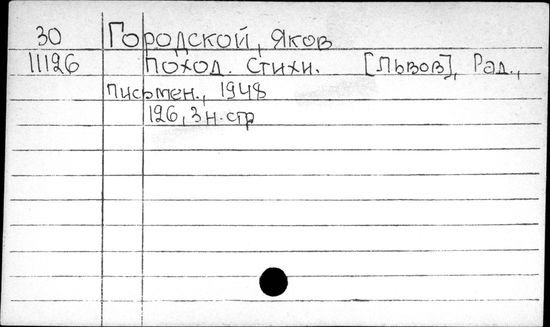 30 Городской, Яков
11126 Поход. Стихи. [Львов], Рад.,
письмен., 1948
126, 3 н. стр